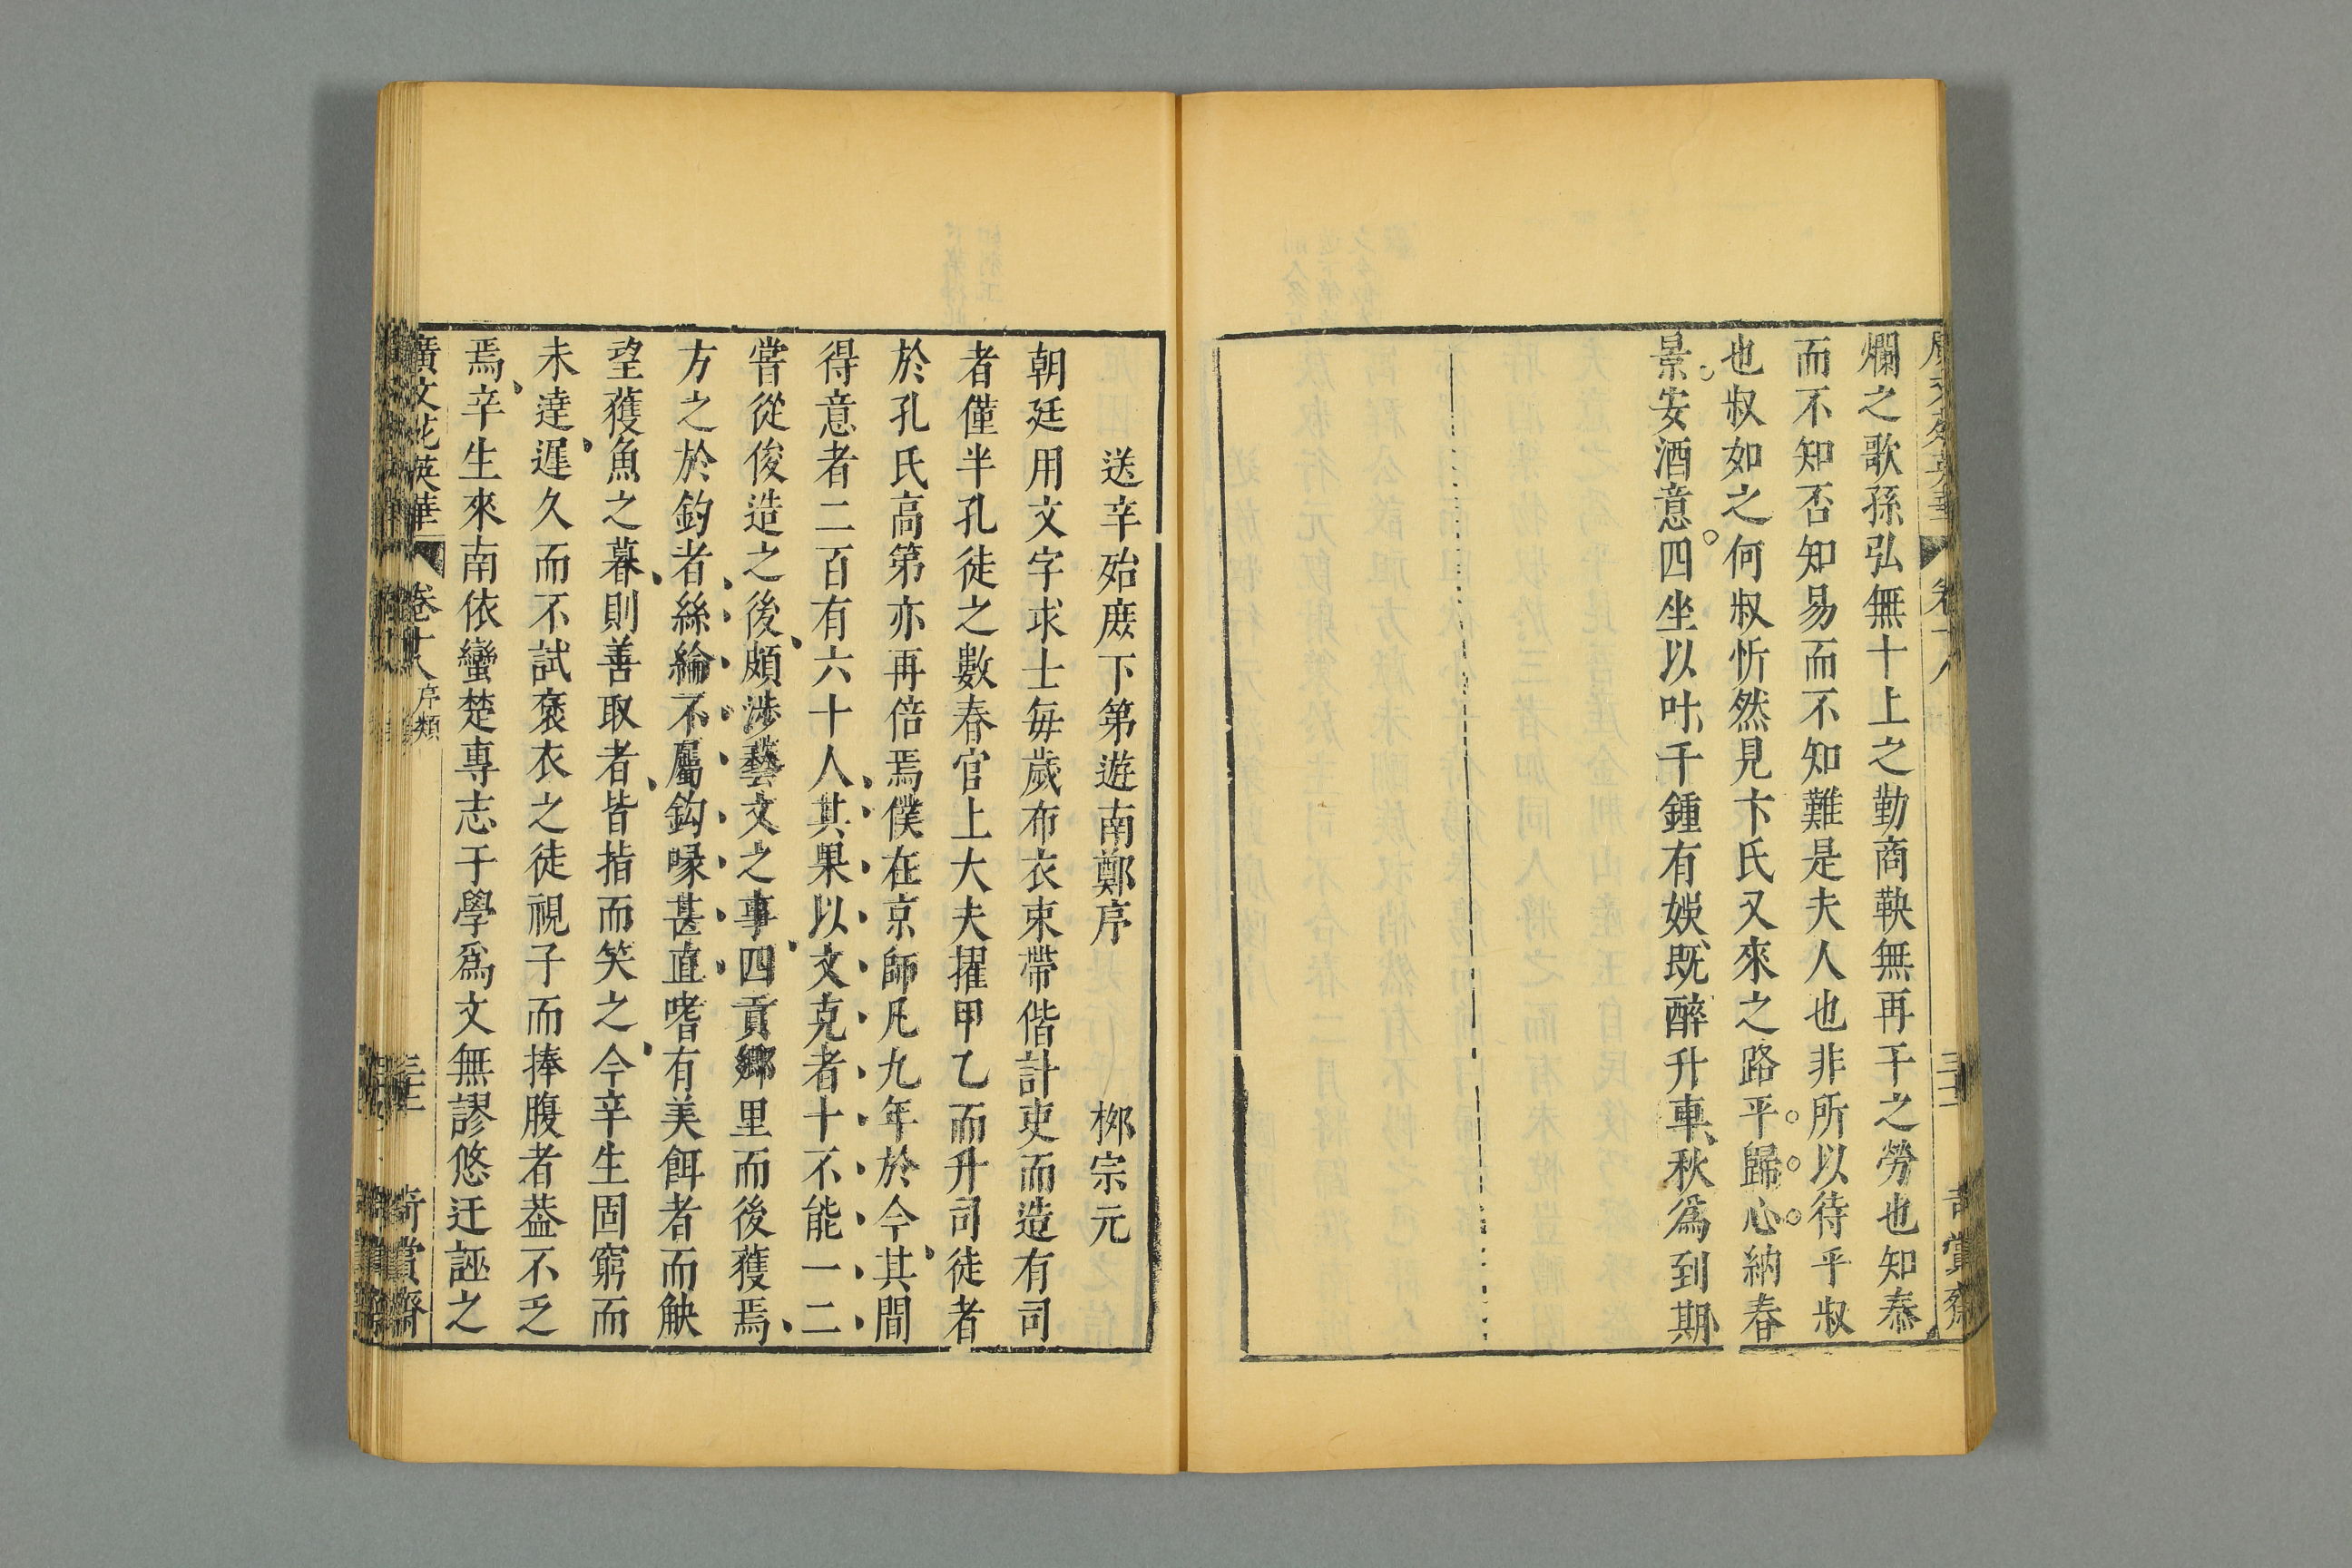 爛之歌孫弘無十上之勤商鞅無再干之勞也知忝
而不知否知易而不知難是夫人也非所以待乎叔
也叔如之何叔忻然見卞氏又來之路平歸心納春
景安酒意四坐以叶千鍾有娭既醉升車秋爲到期
送辛殆庻下第遊南鄭序 栁宗元
朝廷用文字求士每歲布衣束帶偕計吏而造有司
者僅半孔徒之數春官上大夫擢甲乙而升司徒者
於孔氏高第亦再倍焉僕在京師凡九年於今其間
得意者二百有六十人其果以文克者十不能一二
嘗從俊造之後頗涉藝文之事四貢鄉里而後獲焉
方之於釣者絲綸不屬鈎喙甚直嗜有美餌者而觖
望獲魚之暮則善取者皆指而笑之今辛生固窮而
未達遲久而不試褒衣之徒視子而捧腹者葢不乏
焉辛生來南依蠻楚專志于學爲文無謬悠迂誣之
廣文苑英華 卷十八 序類 奇賞齋